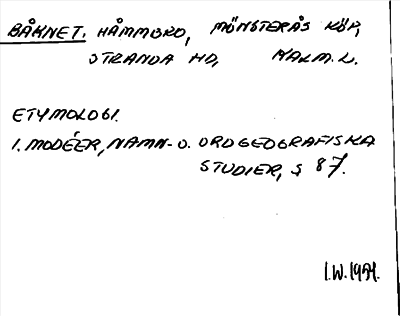 BÅKNET. HÅMMBRO, MÖNSTERÅS KÖP,
STRANDA HD, KALM. L.
ETYMOLOGI.
I. MODÉER, NAMN- O. ORDGEOGRAFISKA
STUDIER, S 87.
I.W.